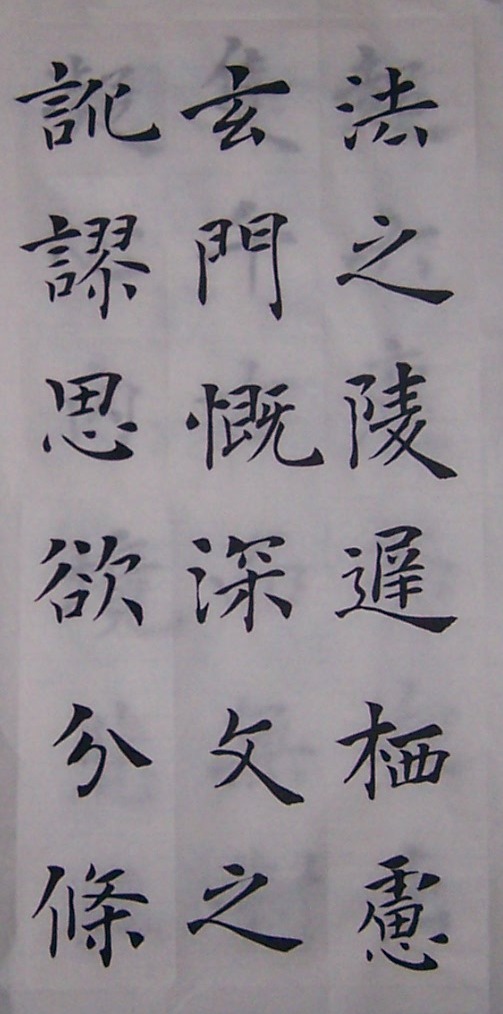 法之陵遲栖慮
玄門慨深文之
訛謬思欲分條